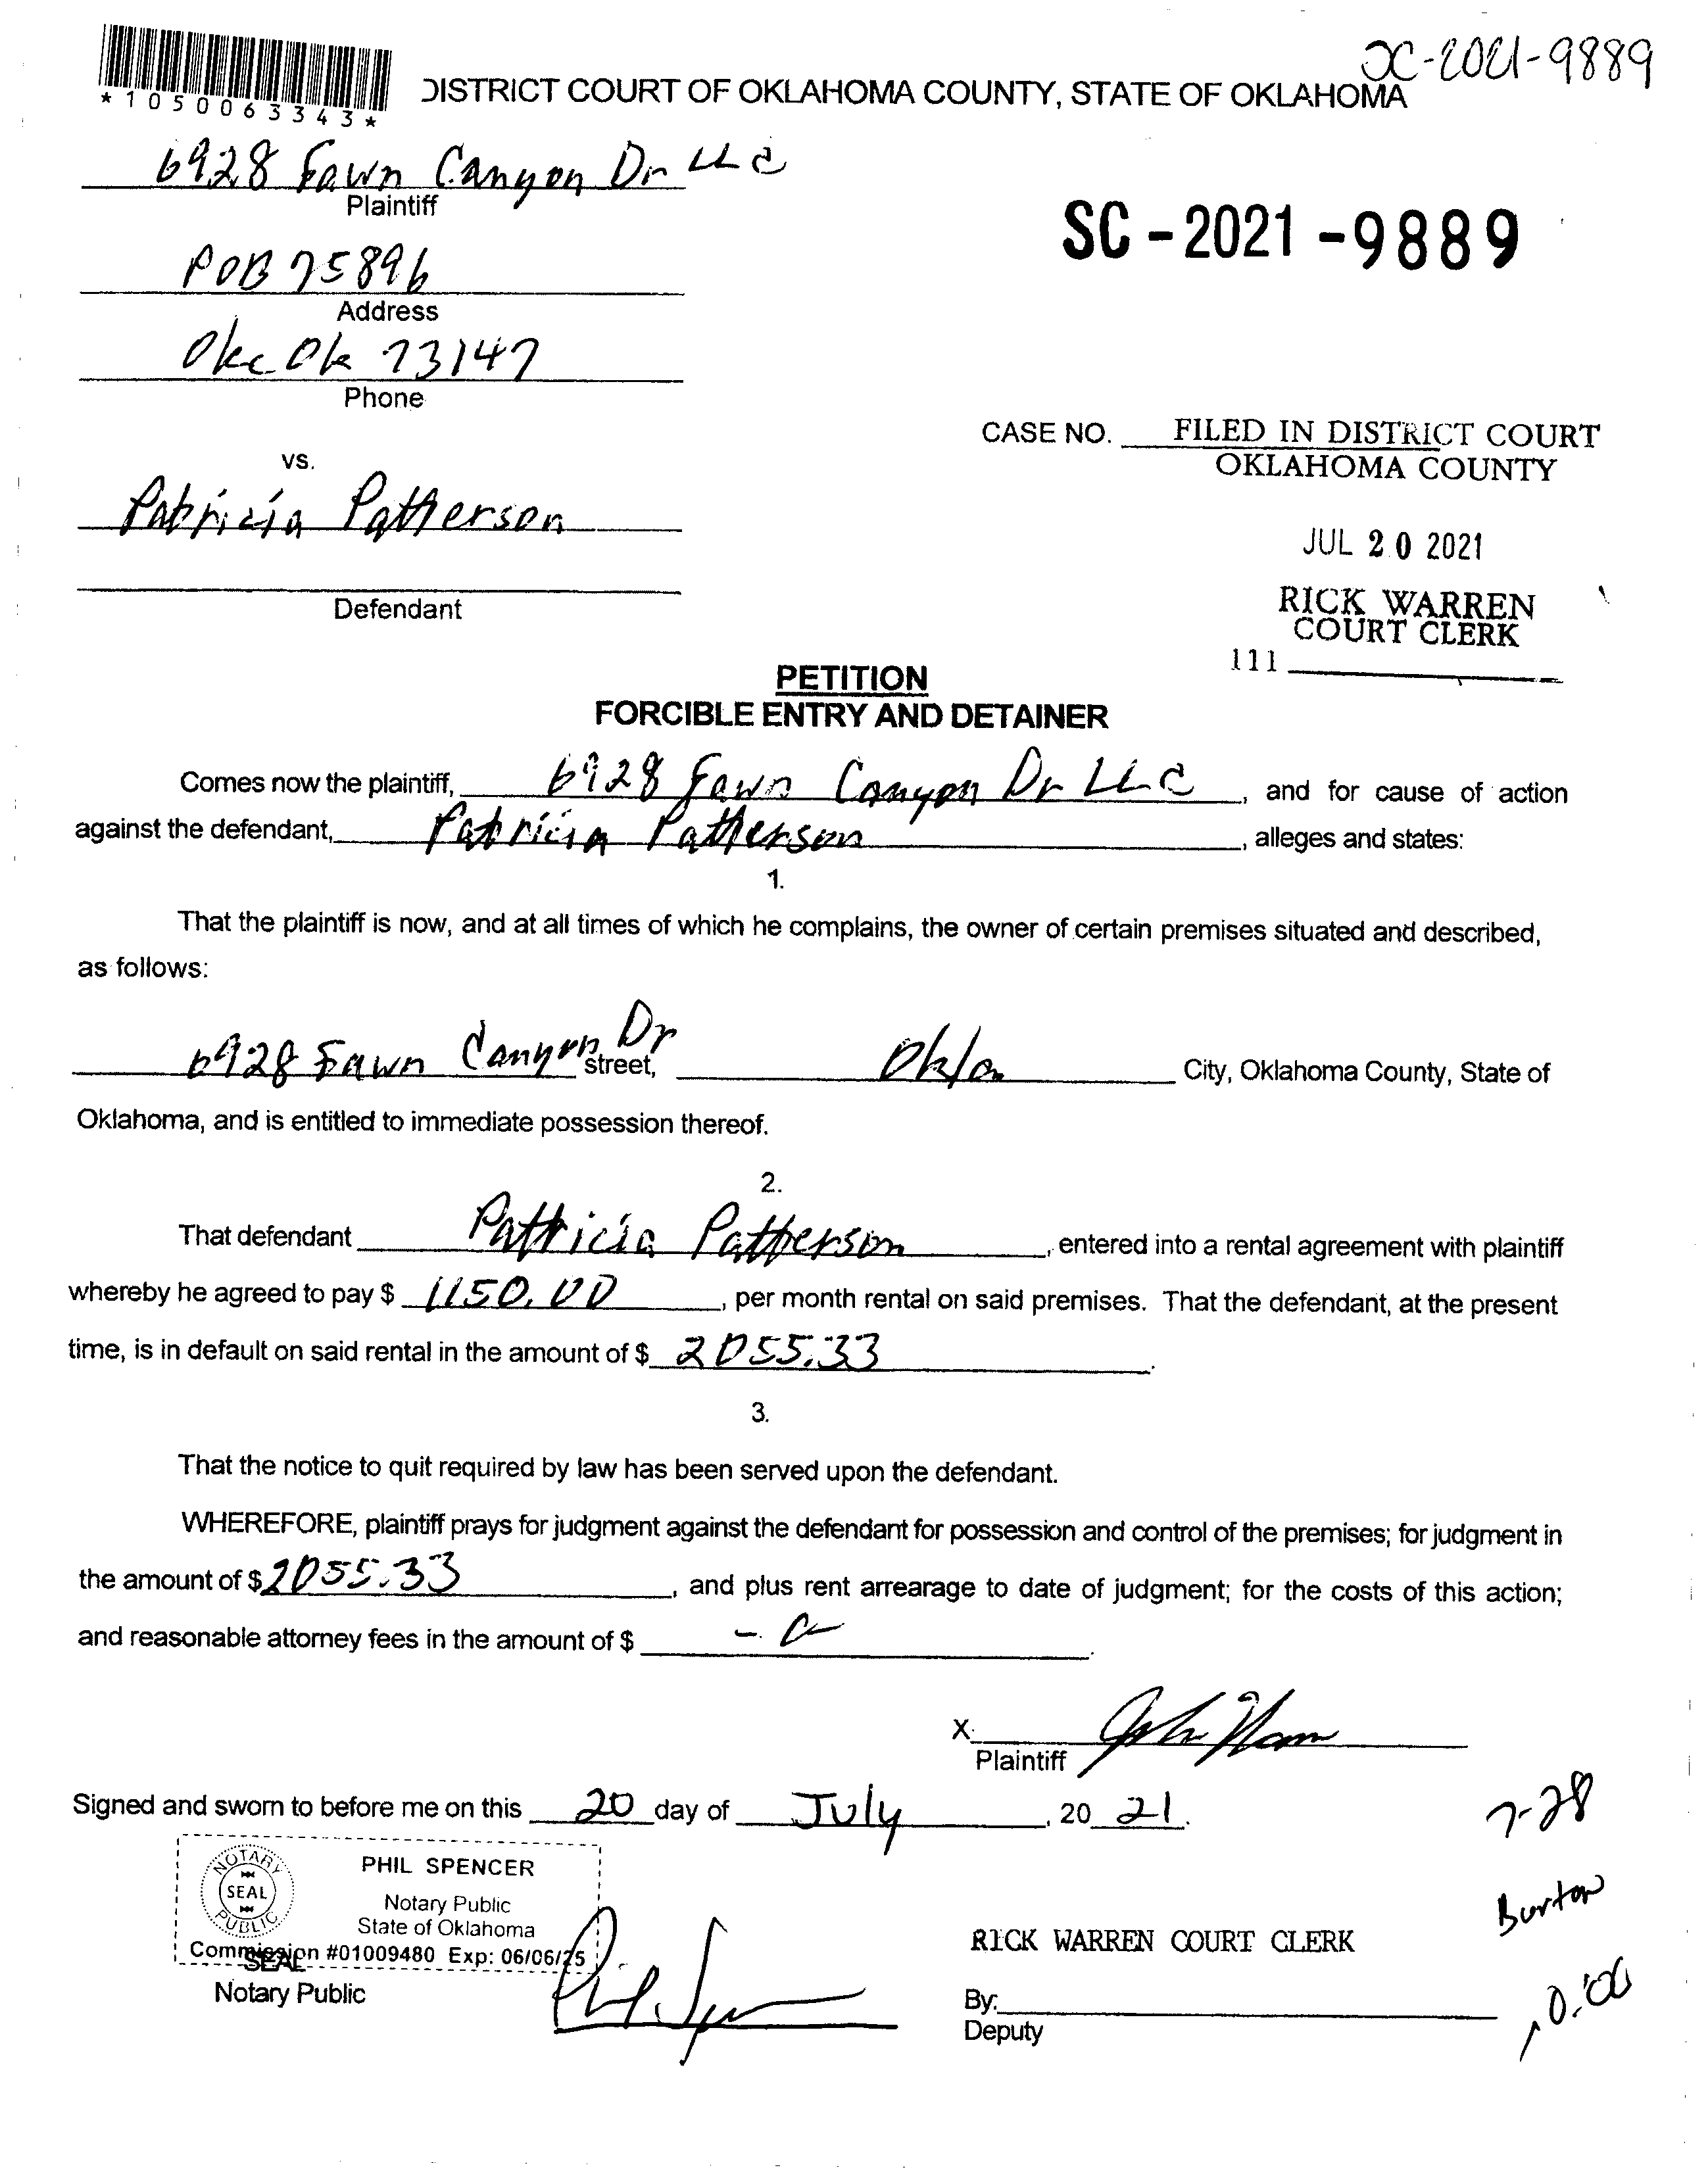 SC-2021-9889
*1050063343*
DISTRICT COURT OF OKLAHOMA COUNTY, STATE OF OKLAHOMA
6928 Fawn Canyon Dr LLC
Plaintiff
SC-2021-9889
POB 75896
Address
Okc Ok 73147
Phone
CASE NO. FILED IN DISTRICT COURT
OKLAHOMA COUNTY
vs.
Patricia Patterson
JUL 20 2021
Defendant
RICK WARREN
COURT CLERK
111
PETITION
FORCIBLE ENTRY AND DETAINER
Comes now the plaintiff, 6928 Fawn Canyon Dr LLC, and for cause of action
against the defendant, Patricia Patterson, alleges and states:
1.
That the plaintiff is now, and at all times of which he complains, the owner of certain premises situated and described,
as follows:
6928 Fawn Canyon Dr street, Okla City, Oklahoma County, State of
Oklahoma, and is entitled to immediate possession thereof.
2.
That defendant Patricia Patterson, entered into a rental agreement with plaintiff
whereby he agreed to pay $ 1150.00, per month rental on said premises. That the defendant, at the present
time, is in default on said rental in the amount of $ 2055.33.
3.
That the notice to quit required by law has been served upon the defendant.
WHEREFORE, plaintiff prays for judgment against the defendant for possession and control of the premises; for judgment in
the amount of $ 2055.33, and plus rent arrearage to date of judgment; for the costs of this action;
and reasonable attorney fees in the amount of $
X
Plaintiff
Signed and sworn to before me on this 20 day of July, 2021.
7-28
NOTARY PUBLIC SEAL
PHIL SPENCER
Notary Public
State of Oklahoma
Commission #01009480 Exp: 06/06/25
SEAL
Notary Public
Burton
RICK WARREN COURT CLERK
By:
Deputy